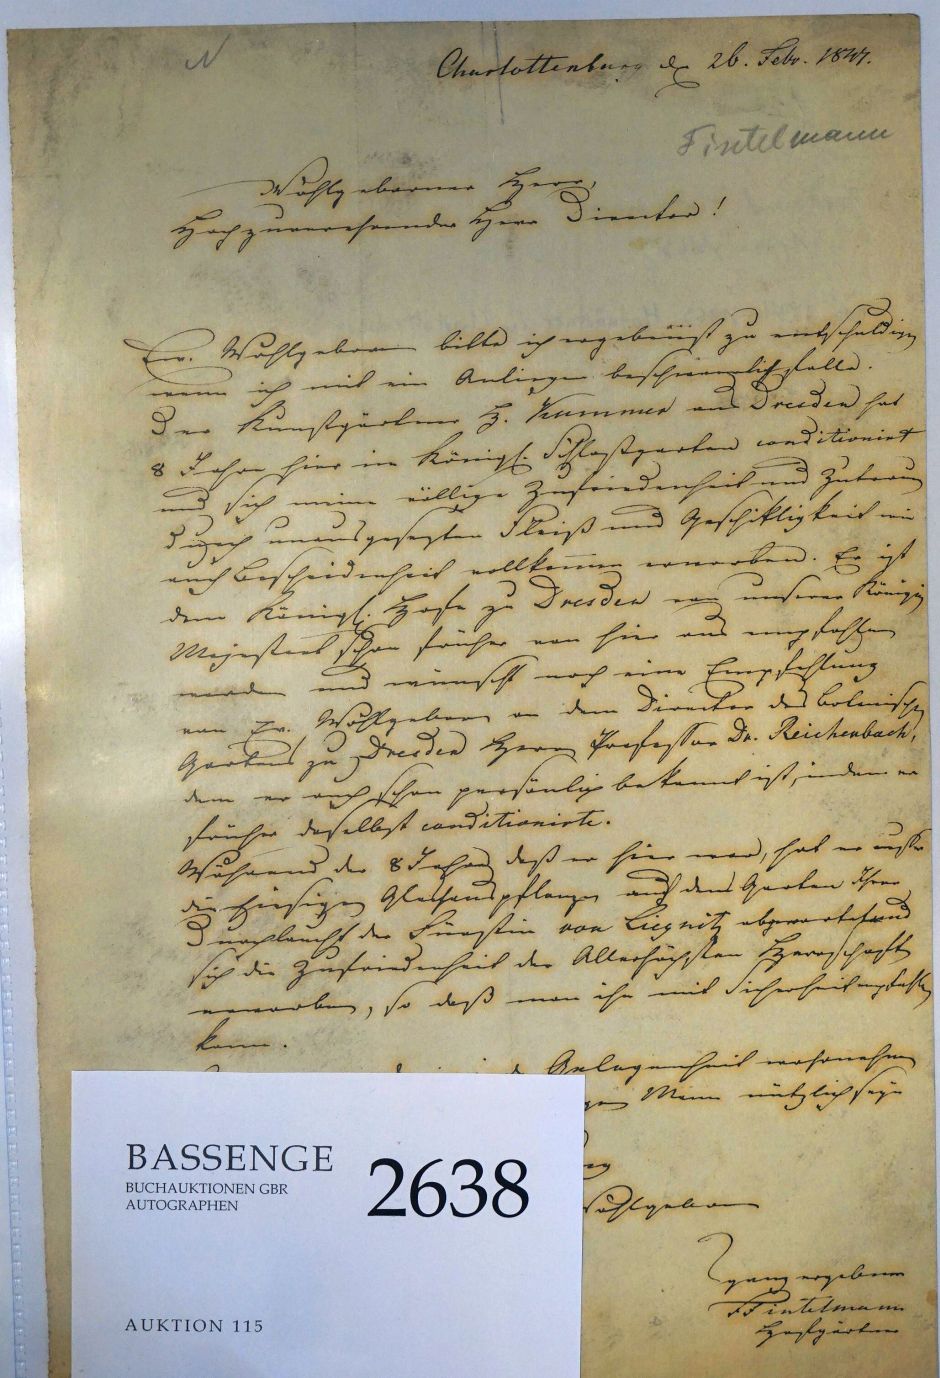 Charlottenburg d. 26. Febr. 1847.
Fintelmann
Wohlgeborner Herr,
Hochzuverehrender Herr Director!
Ew. Wohlgeboren bitte ich ergebenst zu entschuldigen
wenn ich mit ein Anliegen beschwerlich falle.
Der Kunstgärtner H. Kummer aus Dresden hat
8 Jahre hier im Königl. Schloßgarten conditionirt
und sich meine völlige Zufriedenheit und Zutrauen
durch unausgesetzten Fleiß und Geschikligkeit wie
auch Bescheidenheit vollkommen erworben. Er ist
dem Königl. Hofe zu Dresden von unserer Königin
Majestaet schon früher von hier aus empfohlen
worden und wünscht noch eine Empfehlung
von Ew. Wohlgeboren an dem Director des botanischen
Gartens zu Dresden Herrn Professor Dr. Reichenbach,
dem er auch schon persönlich bekannt ist, indem er
früher daselbst conditionirte.
Während der 8 Jahre daß er hier war, hat er außer
die hiesigen Glashauspflanzen auch den Garten Ihrer
Durchlaucht der Fürstin von Liegnitz abgewartet und
sich die Zufriedenheit der Allerhöchsten Herrschaften
erworben, so daß man ihn mit Sicherheit empfehlen
kann.
Gelegenheit wahrnehmen
Mann nützlich seyn
Wohlgeboren
ganz ergebener
F Fintelmann
Hofgärtner
BASSENGE
BUCHAUKTIONEN GBR
AUTOGRAPHEN
2638
AUKTION 115